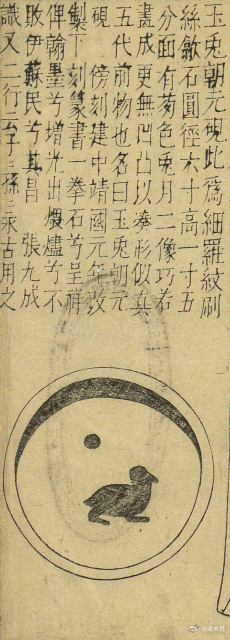 玉兎朝元硯此為細羅紋刷
絲歙石圓徑六寸高一寸五
分面有菊色兎月二像巧若
畫成更無凹凸以湊形似真
五代前物也名曰玉兎朝元
硯 傍刻建中靖國元年改
製下刻篆書一拳石兮呈祥
俾翰墨兮增光出煨燼兮不
敗伊蘇民兮其昌 張九成
識又二行云子二孫二永古用之